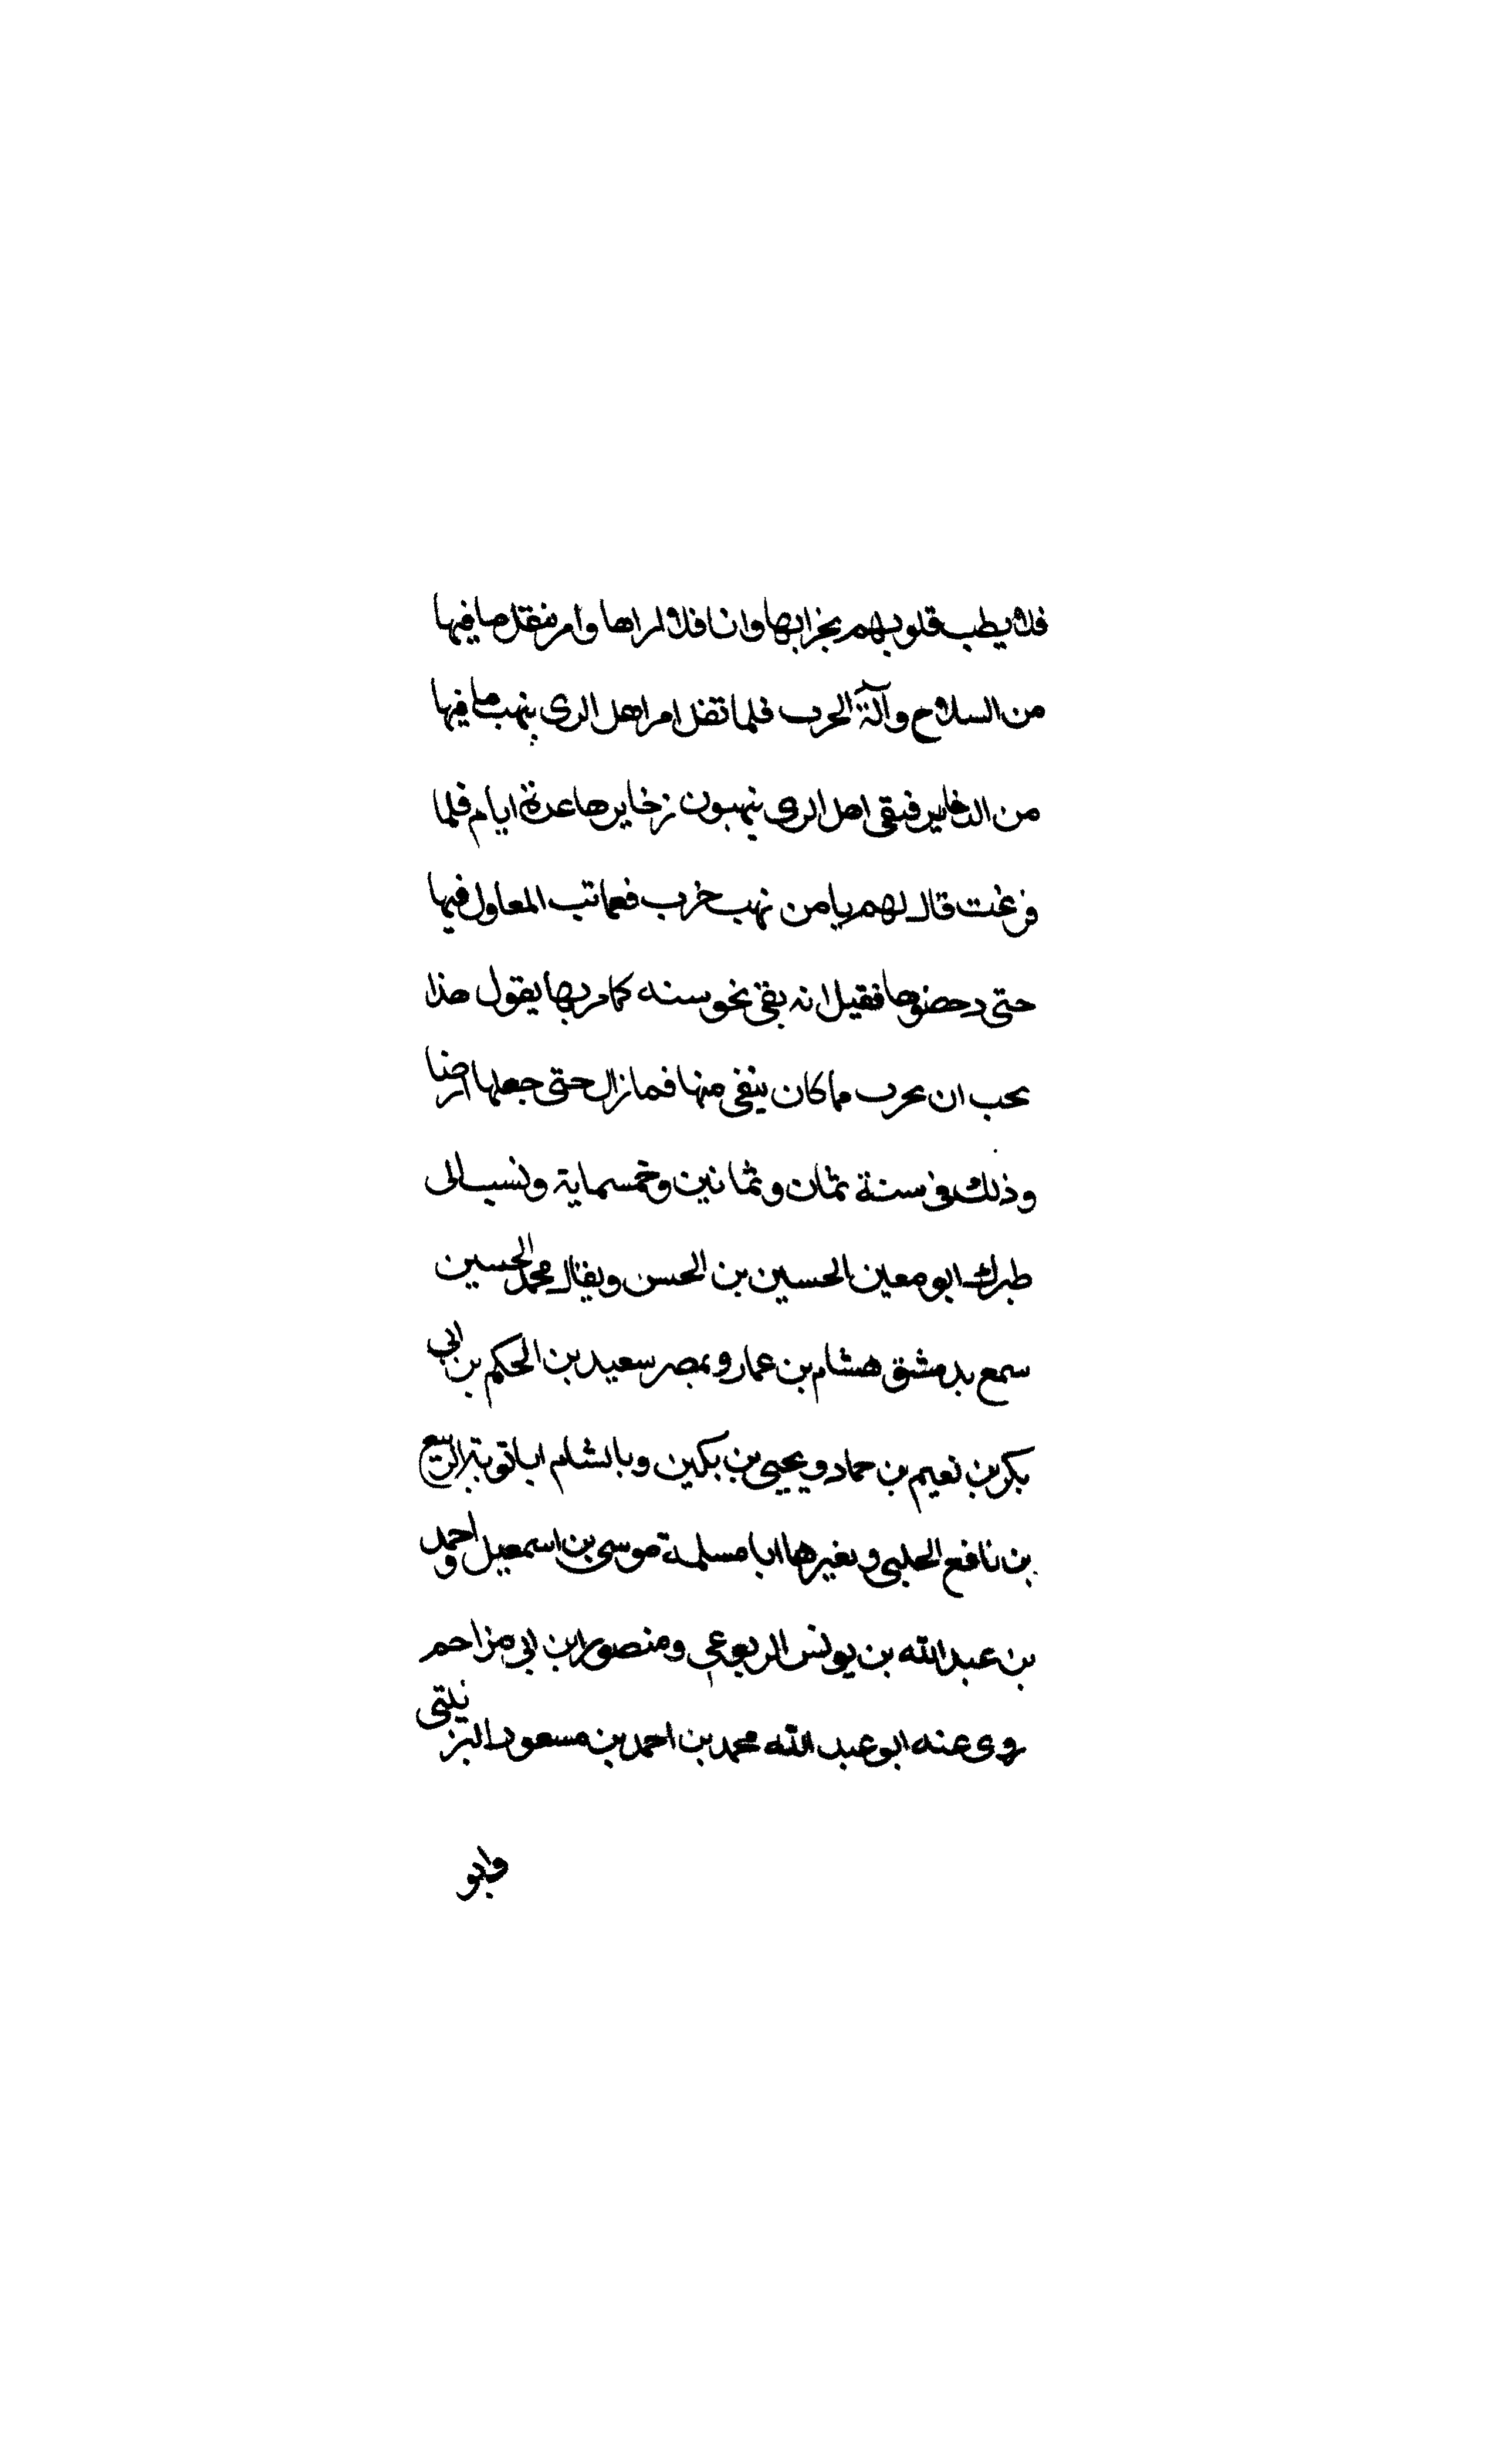 فلا يطب قلوبهم بخرابها وانا فلا اراها وامر بنقل ما فيها
من السلاح وآلة الحرب فلما نقل امر اهل الرى بنهب ما فيها
من الدخاير فبقى اهل الرى ينهبون زخايرها عدة ايام فلما
فرغت قال لهم يا من نهب خرب المعاول فيها
حتى دحضوها فقيل انه بقى نحو سنه كلما مر بها يقول هذا
يحب ان يخرب ما كان ينبغى منها فما زال حتى جعلها ارضا
وذلك فى سنة ثمان وثمانين وخمسماية ونسب الى
طبرك ابو معين الحسين بن الحسن ويقال محمد الحسين
سمع بدمشق هشام بن عمار وبمصر سعيد بن الحكيم بن ابى
بكر بن نعيم بن حماد ويحيى بن بكير وبالشام ابا توبة الربيع
بن نافع الحلبى وبغيرها ابا مسلمة موسى بن اسمعيل واحمد
بن عبد الله بن يونس اليربوعى ومنصور ابن ابى مزاحم
روى عنه ابو عبد الله محمد بن احمد بن مسعود البزنيتى
وابو